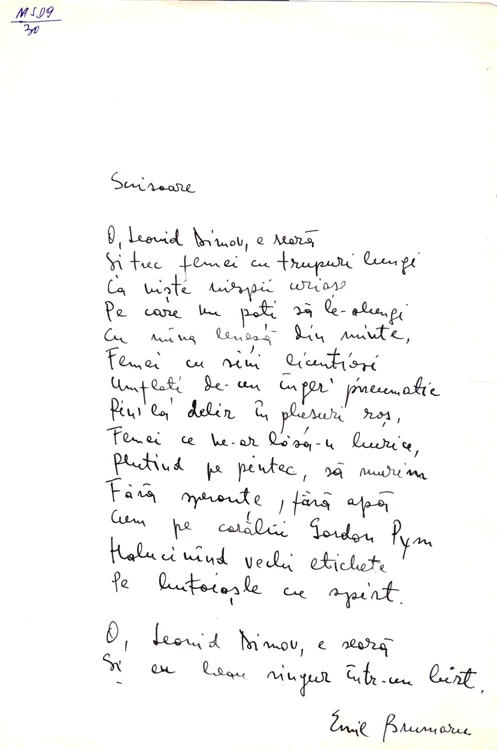 MS09
30
Scrisoare
O, Leonid Dimov, e seară
Și trec femei cu trupuri lungi
Ca niște viespii uriașe
Pe care nu poți să le-alungi
Cu mîna leneșă din minte,
Femei cu sîni licențioși
Umflați de-un înger pneumatic
Pîn' la delir în plusuri roș,
Femei ce ne-ar lăsă-n burice,
Plutind pe pîntec, să murim
Fără speranțe, fără apă
Cum pe corăbii Gordon Pym
Halucinînd vechi etichete
Pe butoiașle cu spirt.
O, Leonid Dimov, e seară
Și eu beau singur într-un birt.
Emil Brumaru